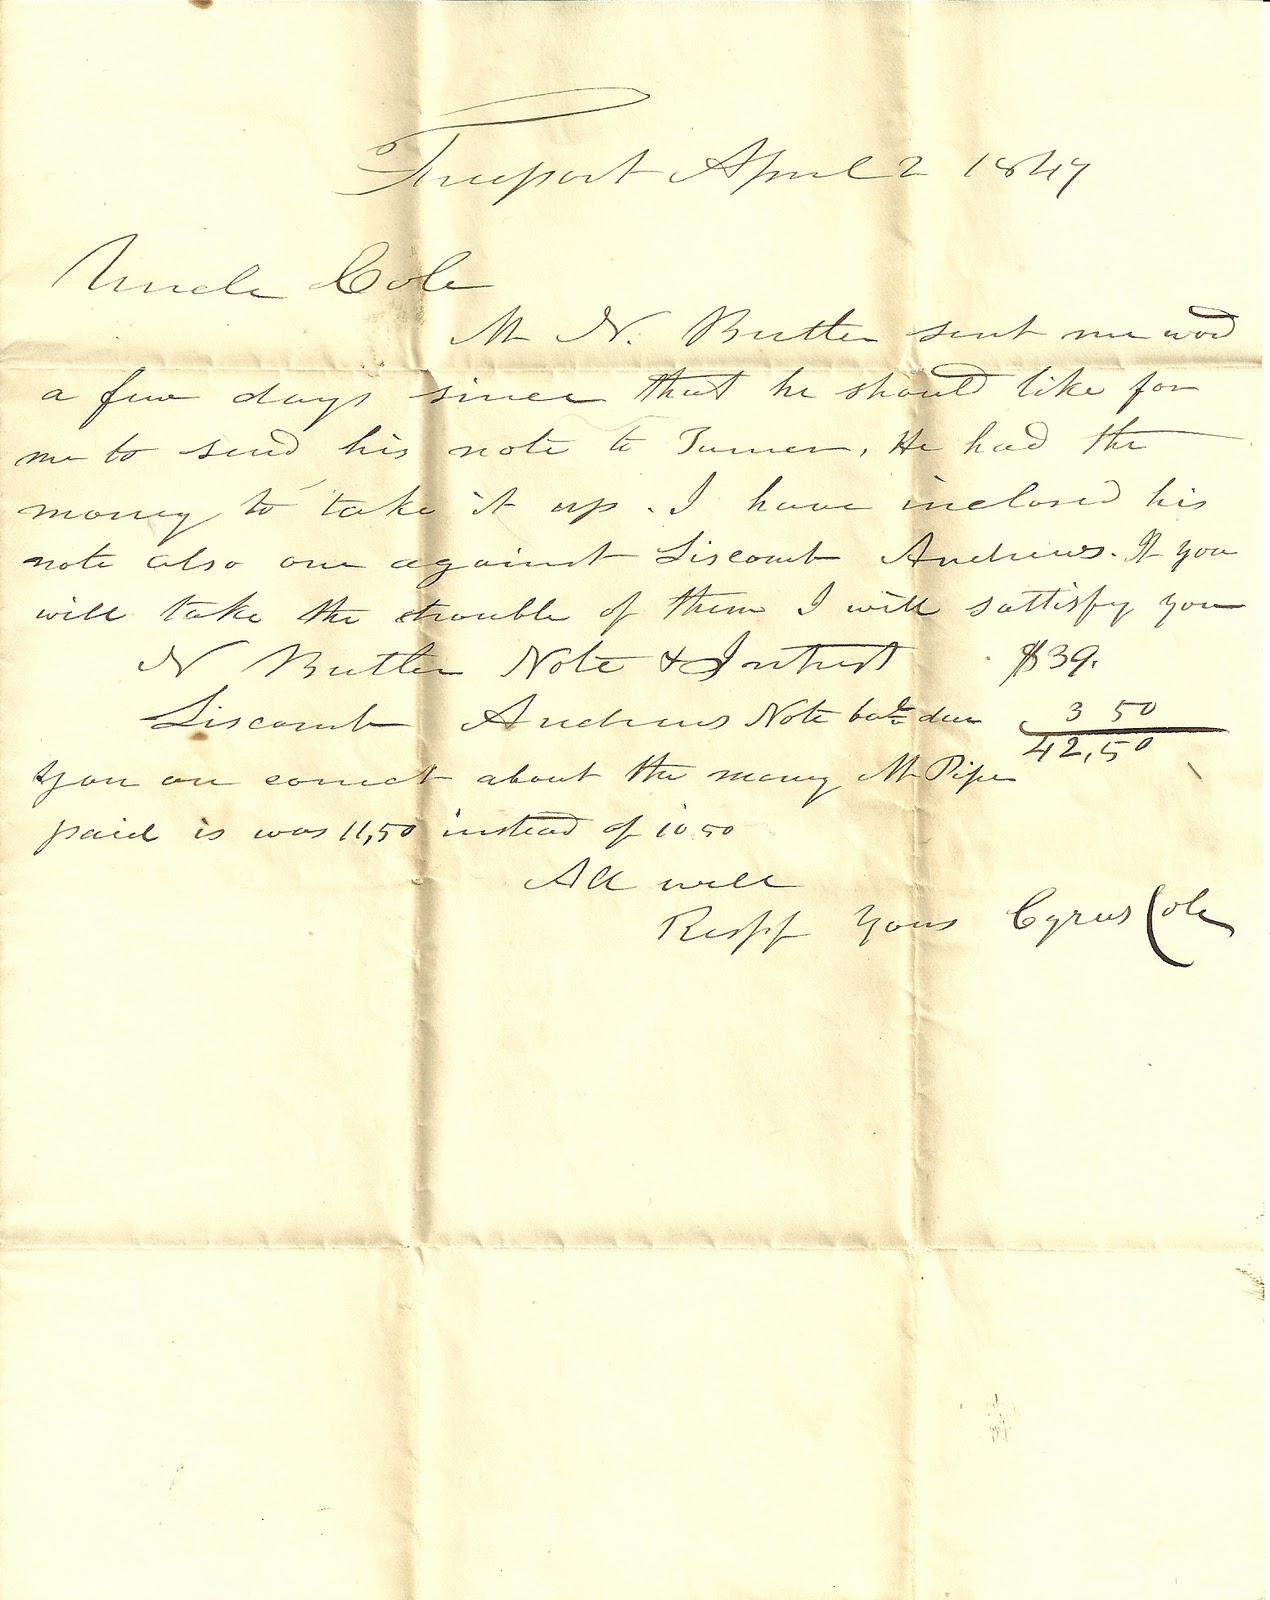 Freeport April 2 1847
Uncle Cole
Mr N. Butler sent me word
a few days since that he should like for
me to send his note to Turner, He had the
money to take it up. I have inclosed his
note also one against Liscomb Andrews. If you
will take the trouble of them I will sattisfy you
N Butler Note & Intrest $39.
Liscomb Andrews Note balc due 3 50
42,50
you are correct about the money Mr Pipe
paid is was 11,50 instead of 10 50
All well
Respf Yours Cyrus Cole